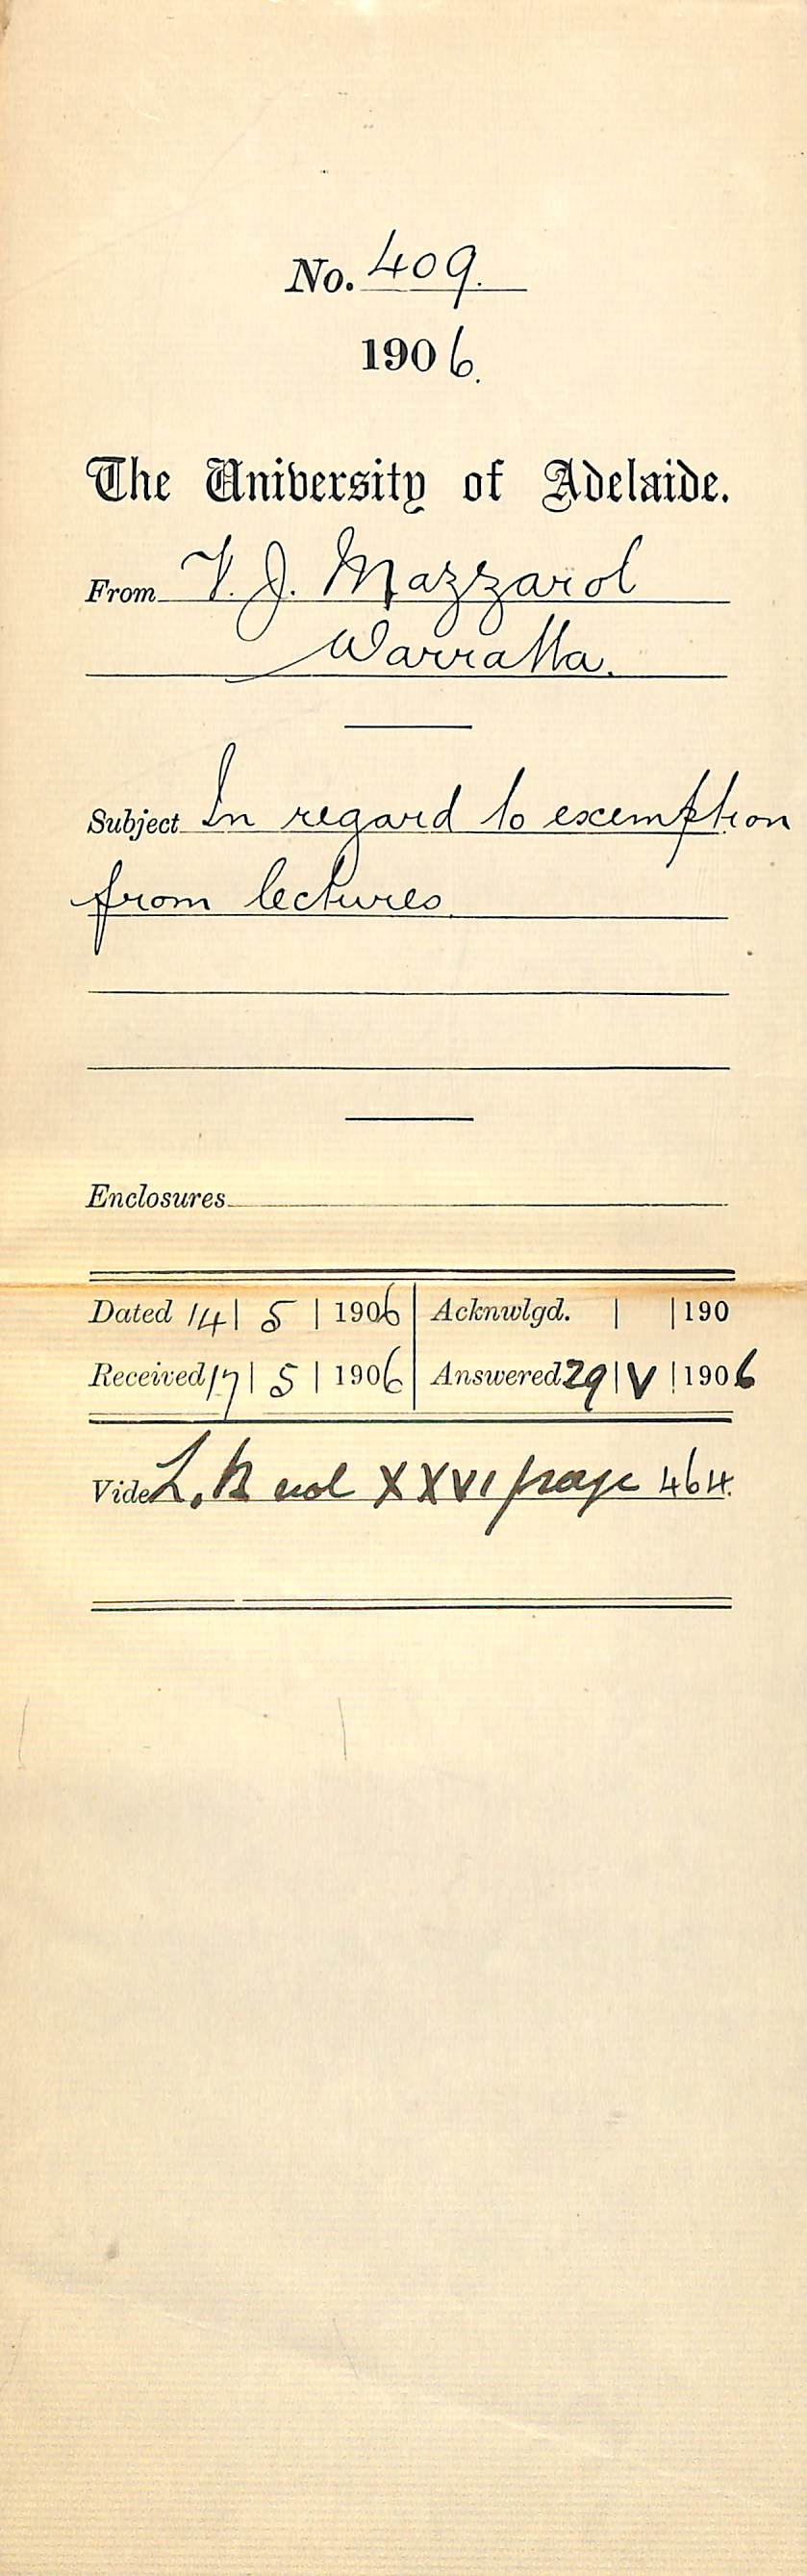 No. 409.
1906.
The University of Adelaide.
From V. J. Mazzarol
Warratta.
Subject In regard to exemption
from lectures.
Enclosures
Dated 14 | 5 | 1906 | Acknwlgd. | | 190
Received 17 | 5 | 1906 | Answered 29 | V | 1906
Vide L. B vol XXVI page 464.